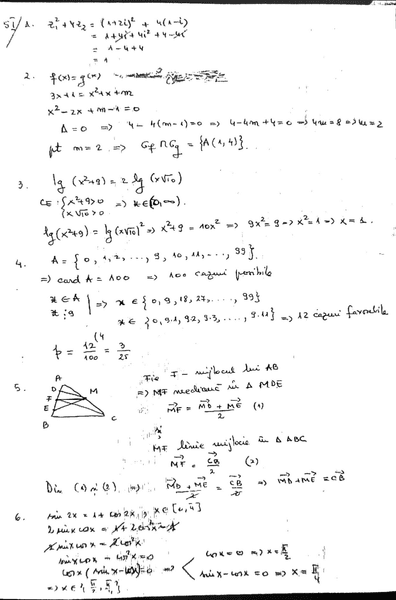 SI/ 1. z₁² + 4z₂ = (1+2i)² + 4(1-i)
= 1+4i+4i²+4-4i
= 1-4+4
= 1
2. f(x)=g(x)
3x+1=x²+x+m
x²-2x+m-1=0
Δ=0 => 4-4(m-1)=0 => 4-4m+4=0 => 4m=8 => m=2
pt m=2 => Gf ∩ Gg = {A(1,4)}.
3. lg (x²+9) = 2 lg (x√10)
CE: { x²+9>0
x√10>0 => x∈(0,∞).
lg(x²+9) = lg(x√10)² => x²+9 = 10x² => 9x²=9 => x²=1 => x=1.
4. A = {0, 1, 2, ..., 9, 10, 11, ..., 99}.
=> card A = 100 => 100 cazuri posibile
x∈A
x⋮9 | => x∈{0, 9, 18, 27, ..., 99}
x∈{0, 9·1, 9·2, 9·3, ..., 9·11} => 12 cazuri favorabile
p = 12/100 (4 = 3/25
5. Fie F - mijlocul lui AB
A D F E B M C
=> MF mediană în Δ MDE
MF = (MD + ME)/2 (1)
și
MF linie mijlocie în Δ ABC
MF = CB/2 (2)
Din (1) și (2) => (MD+ME)/2 = CB/2 => MD+ME=CB
6. sin 2x = 1 + cos 2x, x∈[0,π]
2 sinx cosx = 1+2cos²x-1
2 sinx cosx = 2cos²x
sinx cosx - cos²x=0
cosx(sinx-cosx)=0 => cosx=0 => x=π/2
sinx-cosx=0 => x=π/4
=> x∈{π/2, π/4}